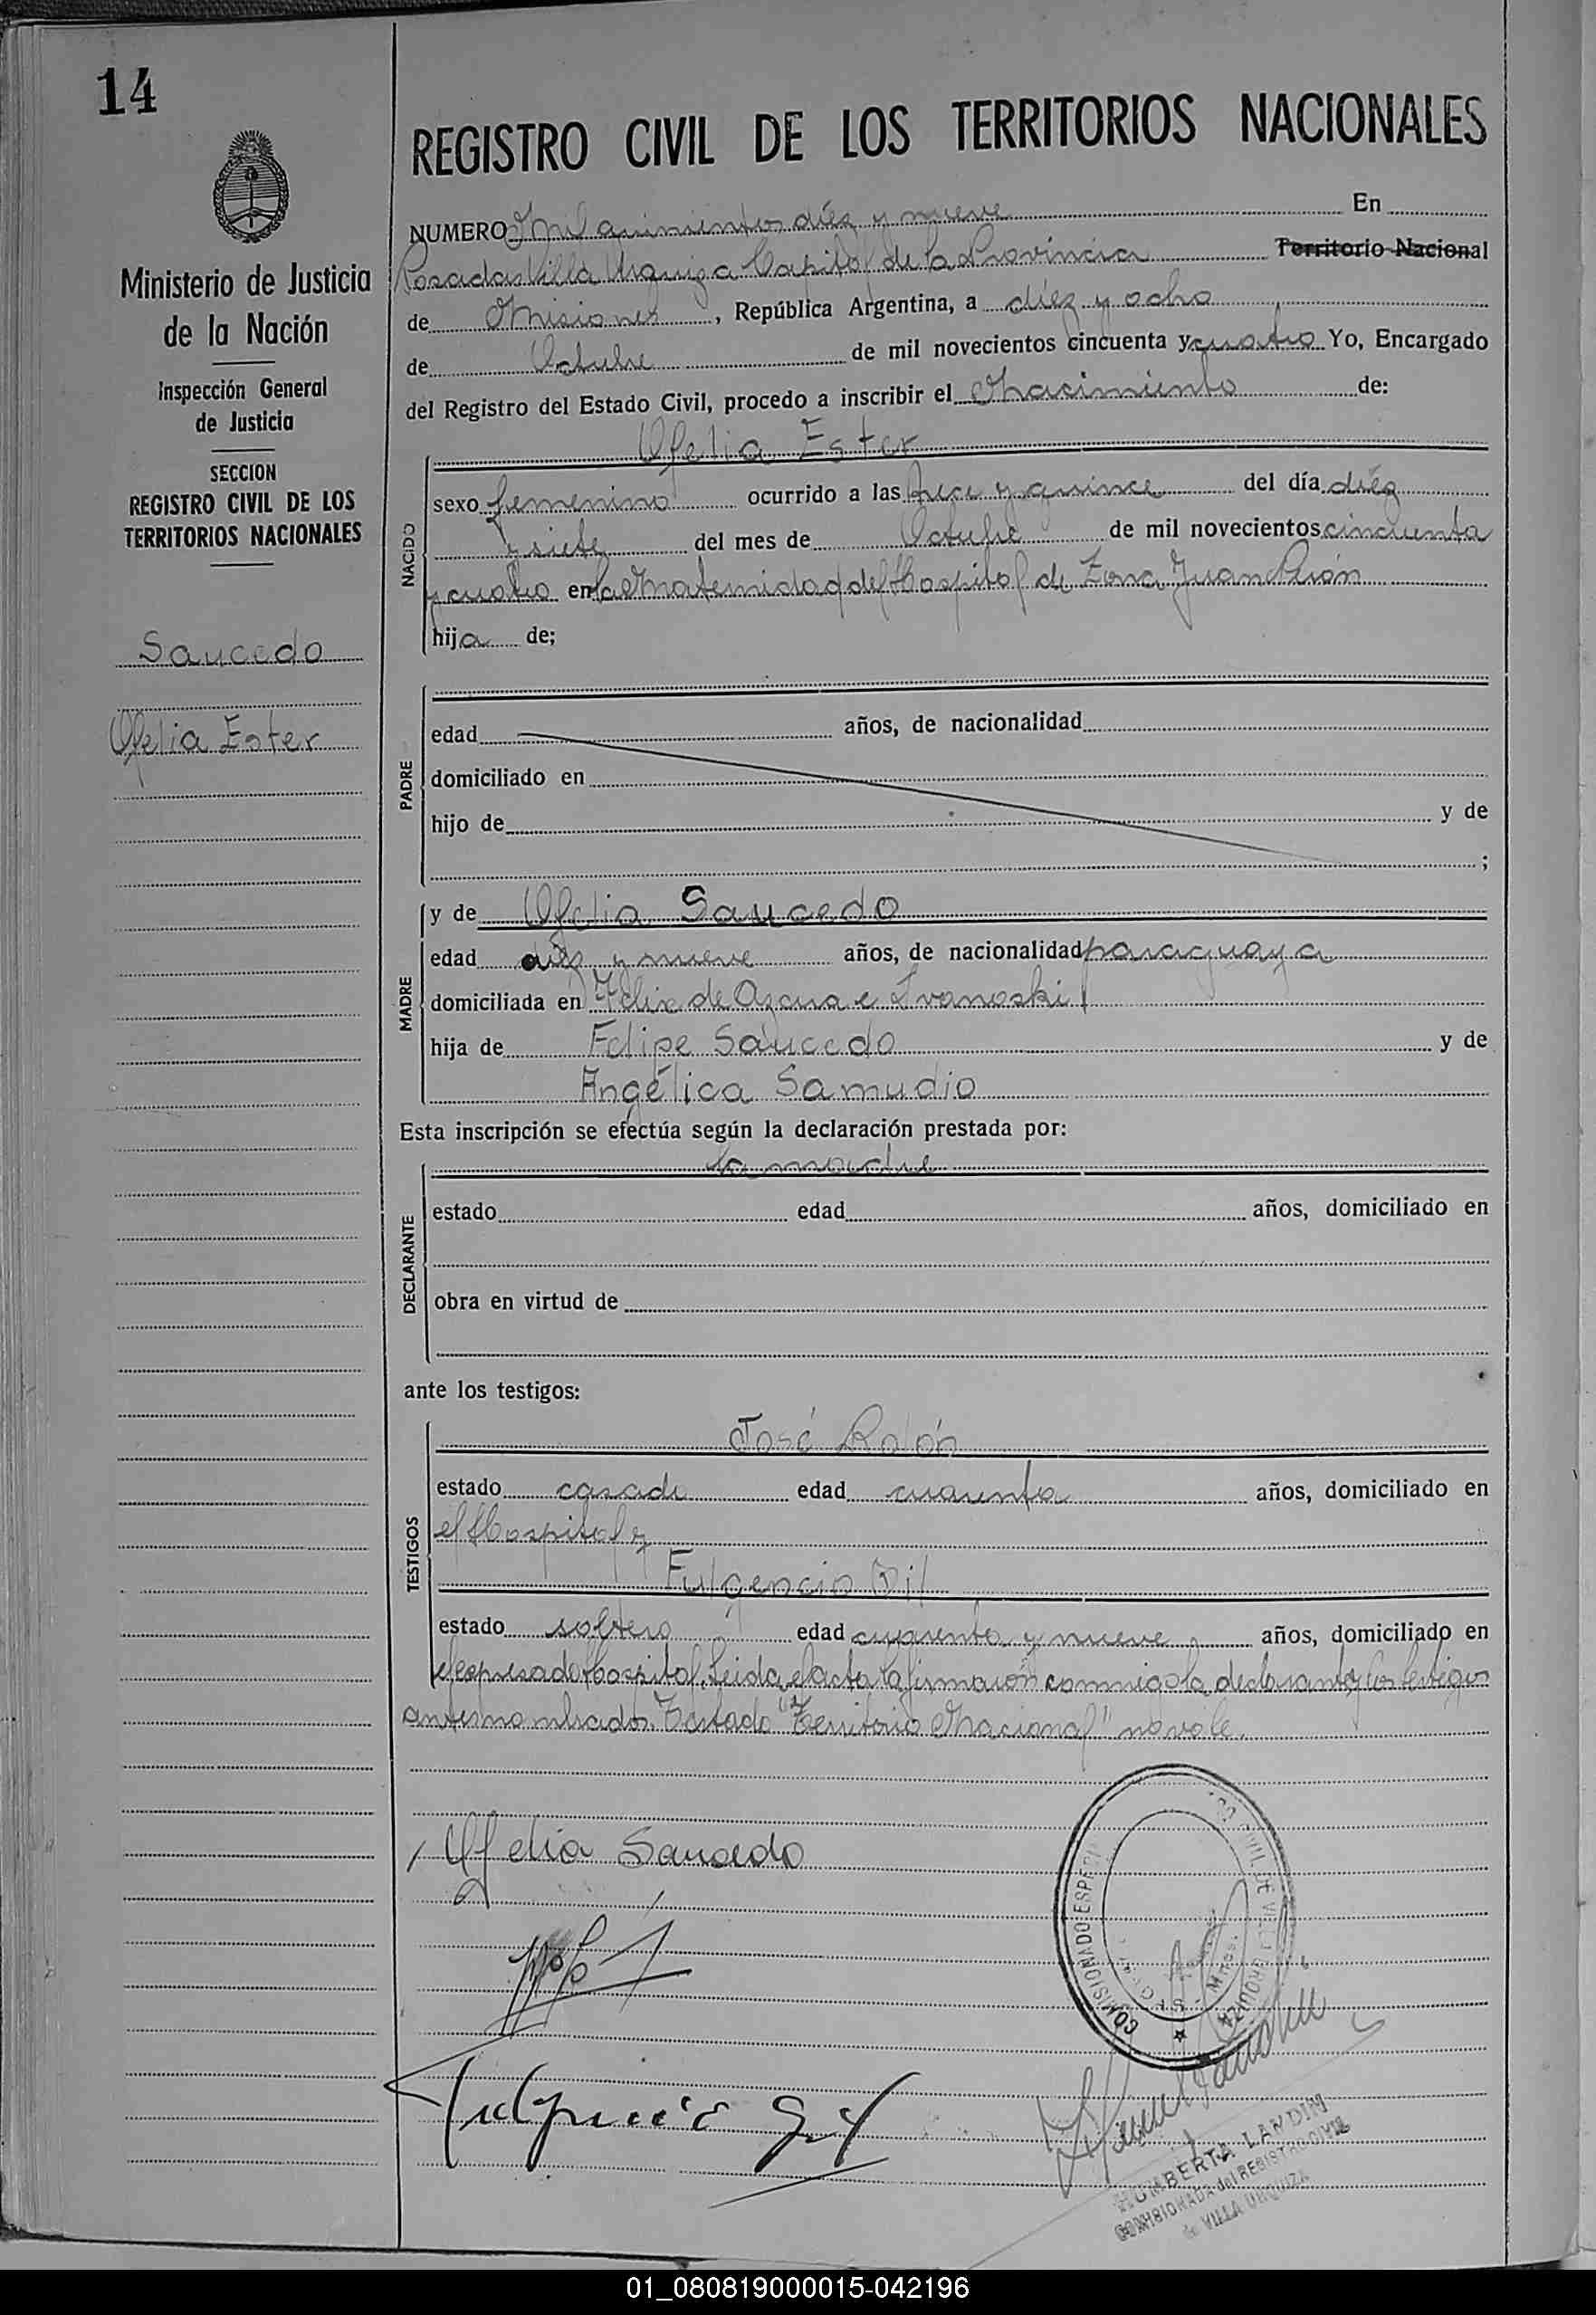 14
REGISTRO CIVIL DE LOS TERRITORIOS NACIONALES
Ministerio de Justicia
de la Nación
Inspección General
de Justicia
SECCION
REGISTRO CIVIL DE LOS
TERRITORIOS NACIONALES
Saucedo
Ofelia Ester
NUMERO Mil quinientos diez y nueve En
Posadas Villa Urquiza Capital de la Provincia Territorio Nacional
de Misiones, República Argentina, a diez y ocho
de Octubre de mil novecientos cincuenta y cuatro Yo, Encargado
del Registro del Estado Civil, procedo a inscribir el Nacimiento de:
NACIDO
Ofelia Ester
sexo femenino ocurrido a las trece y quince del día diéz
y siete del mes de Octubre de mil novecientos cincuenta
y cuatro en la Maternidad del Hospital de Zona Juan Perón
hija de;
PADRE
edad años, de nacionalidad
domiciliado en
hijo de y de
;
MADRE
y de Ofelia Saucedo
edad diez y nueve años, de nacionalidad paraguaya
domiciliada en Félix de Azara e Ivanoski
hija de Felipe Saucedo y de
Angélica Samudio
Esta inscripción se efectúa según la declaración prestada por:
DECLARANTE
la madre
estado edad años, domiciliado en
obra en virtud de
ante los testigos:
TESTIGOS
José Rolón
estado casado edad cuarenta años, domiciliado en
el Hospital y
Fulgencio Gil
estado soltero edad cuarenta y nueve años, domiciliado en
el expresado Hospital. Leida el acta la firmaron conmigo la declarante y los testigos
antes nombrados. Testado "Territorio Nacional" no vale.
Ofelia Saucedo
Fulgencio Gil
COMISIONADO ESPECIAL CIVIL DE VILLA URQUIZA
HUMBERTA LANDIN
COMISIONADA del REGISTRO CIVIL
de VILLA URQUIZA
01_080819000015-042196